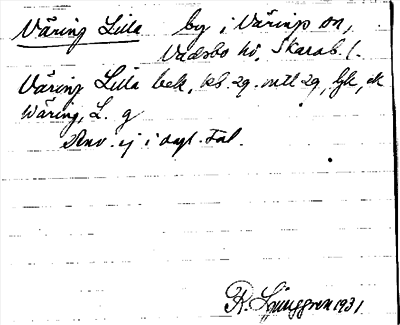 Väring Lilla by i Värings sn,
Vadsbo hd, Skarab. l.
Väring Lilla bek, kb. 29. mtl 29, tjk, ek
Wäring, L. g
Anv. ej i dagl. tal.
K. Ljunggren 1931